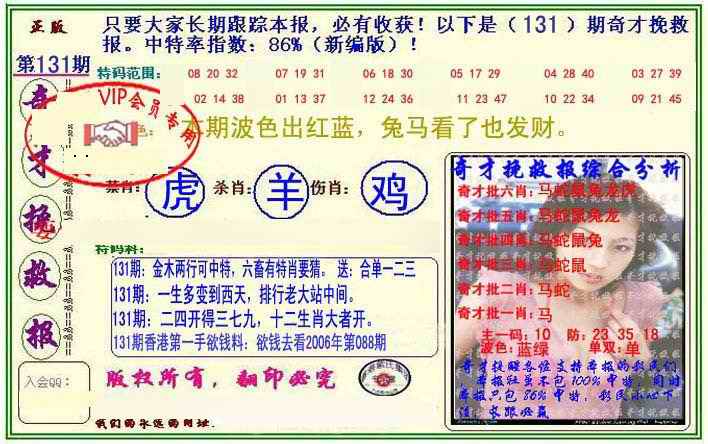 正版
只要大家长期跟踪本报，必有收获！以下是（131）期奇才挽救
报。中特率指数：86%（新编版）！
第131期
特码范围：
08 20 32
07 19 31
06 18 30
05 17 29
04 28 40
03 27 39
02 14 38
01 13 37
12 24 36
11 23 47
10 22 34
09 21 45
VIP会员专用
奇
才
挽
救
报
本期波色出红蓝，兔马看了也发财。
禁肖：虎 杀肖：羊 伤肖：鸡
特码料：
131期：金木两行可中特，六畜有特肖要猜。 送：合单一二三
131期：一生多变到西天，排行老大站中间。
131期：二四开得三七九，十二生肖大者开。
131期香港第一手欲钱料：欲钱去看2006年第088期
入会QQ：
版权所有，翻印必究
我们的永远的网址．
奇才挽救报综合分析
奇才批六肖：马蛇鼠兔龙虎
奇才批五肖：马蛇鼠兔龙
奇才批四肖：马蛇鼠兔
奇才批三肖：马蛇鼠
奇才批二肖：马蛇
奇才批一肖：马
主一码：10 防：23 35 18
波色：蓝绿 单双：单